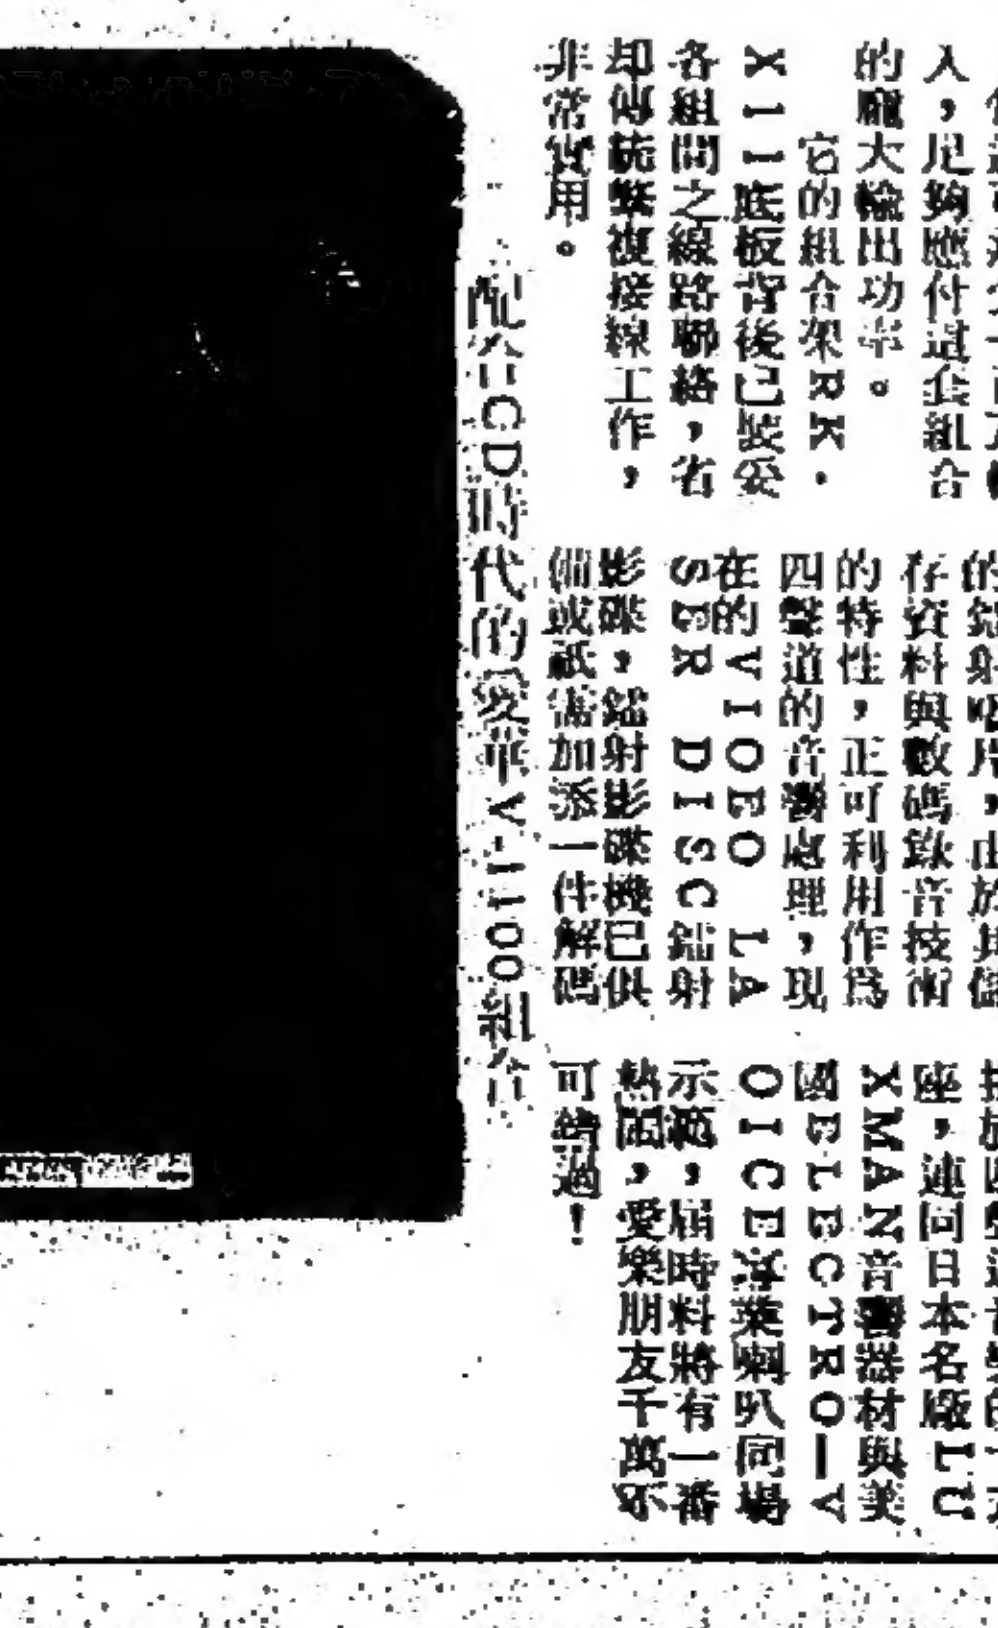 入，足夠應付這套組合
的龐大輸出功率。
它的組合架RK．
X11底板背後已裝妥
各組間之線路聯絡，省
却傳統繁複接線工作，
非常實用。
的鐳射唱片，由於其儲
存資料與數碼錄音技術
的特性，正可利用作爲
四聲道的音響處理，現
在的VIDEO LA
SER DISC鐳射
影碟，鐳射影碟機已俱
備或祇需加添一件解碼
座，連同日本名廠LU
XMAN音響器材與美
國ELECTRO—V
OICE專業喇叭同場
示範，屆時料將有一番
熱鬧，愛樂朋友千萬不
可錯過！
配合CD時代的愛華V-1100組合